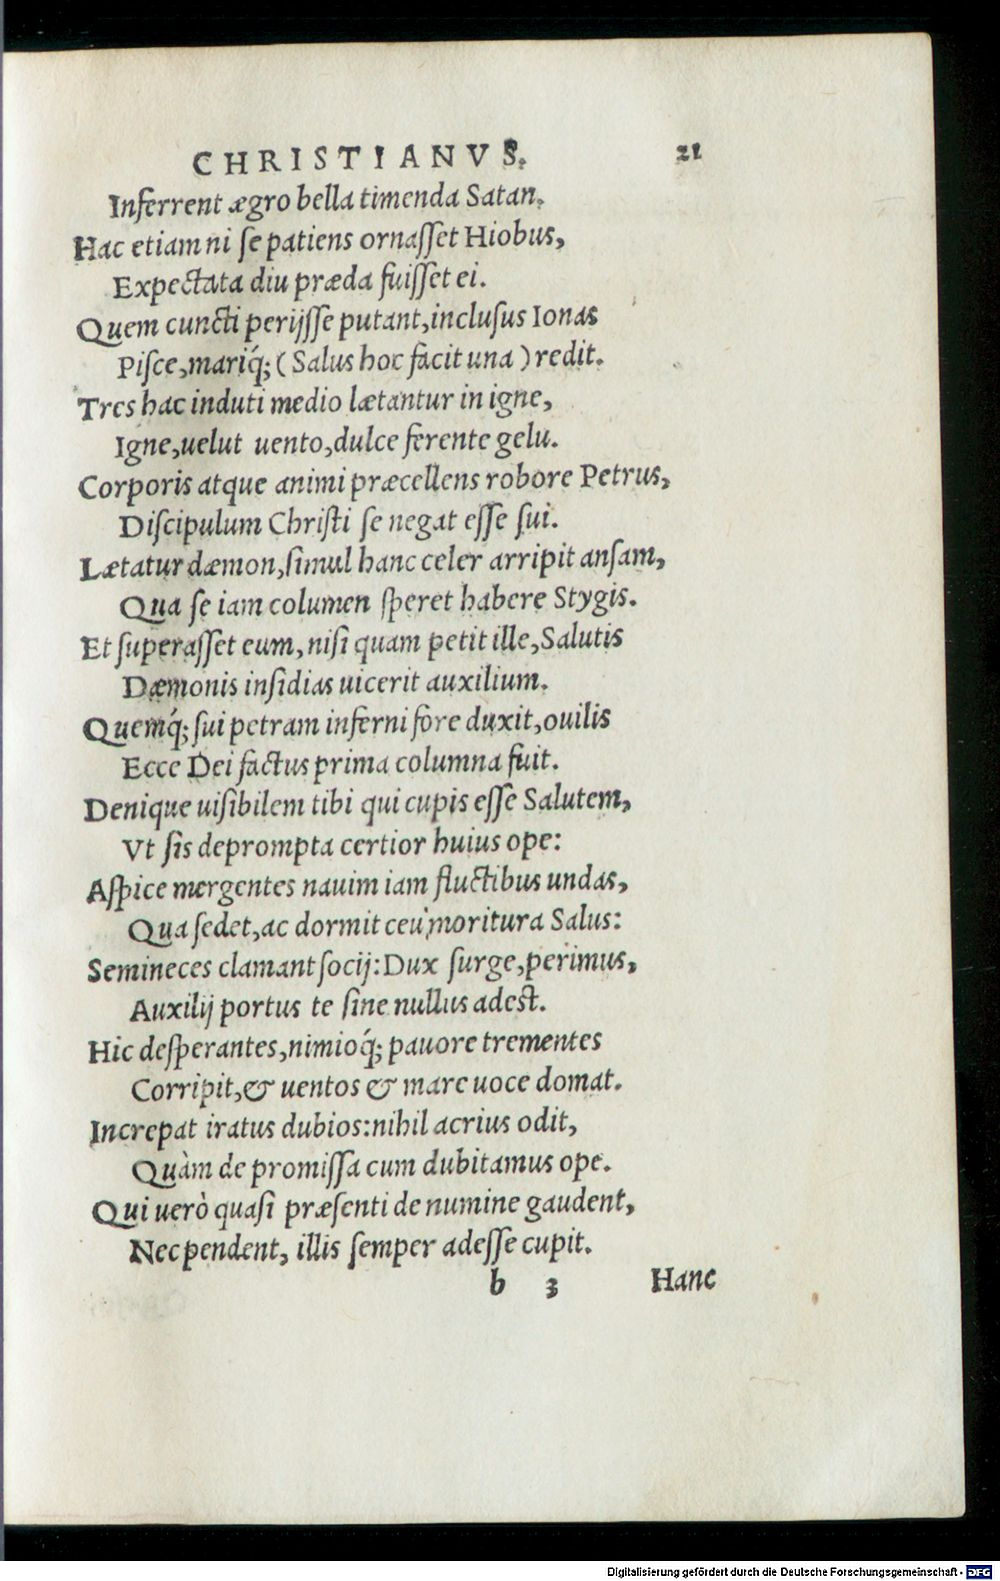 CHRISTIANVS. 21
Inferrent ægro bella timenda Satan.
Hac etiam ni se patiens ornasset Hiobus,
Expectata diu præda fuisset ei.
Quem cuncti perijsse putant, inclusus Ionas
Pisce, mariq́; (Salus hoc facit una) redit.
Tres hac induti medio lætantur in igne,
Igne, uelut uento, dulce ferente gelu.
Corporis atque animi præcellens robore Petrus,
Discipulum Christi se negat esse sui.
Lætatur dæmon, simul hanc celer arripit ansam,
Qua se iam columen speret habere Stygis.
Et superasset eum, nisi quam petit ille, Salutis
Dæmonis insidias uicerit auxilium.
Quemq́; sui petram inferni fore duxit, ouilis
Ecce Dei factus prima columna fuit.
Denique uisibilem tibi qui cupis esse Salutem,
Vt sis deprompta certior huius ope:
Aspice mergentes nauim iam fluctibus undas,
Qua sedet, ac dormit ceu moritura Salus:
Semineces clamant socij: Dux surge, perimus,
Auxilij portus te sine nullus adest.
Hic desperantes, nimioq́; pauore trementes
Corripit, & uentos & mare uoce domat.
Increpat iratus dubios: nihil acrius odit,
Quàm de promissa cum dubitamus ope.
Qui uerò quasi præsenti de numine gaudent,
Nec pendent, illis semper adesse cupit.
b 3 Hanc
Digitalisierung gefördert durch die Deutsche Forschungsgemeinschaft - DFG